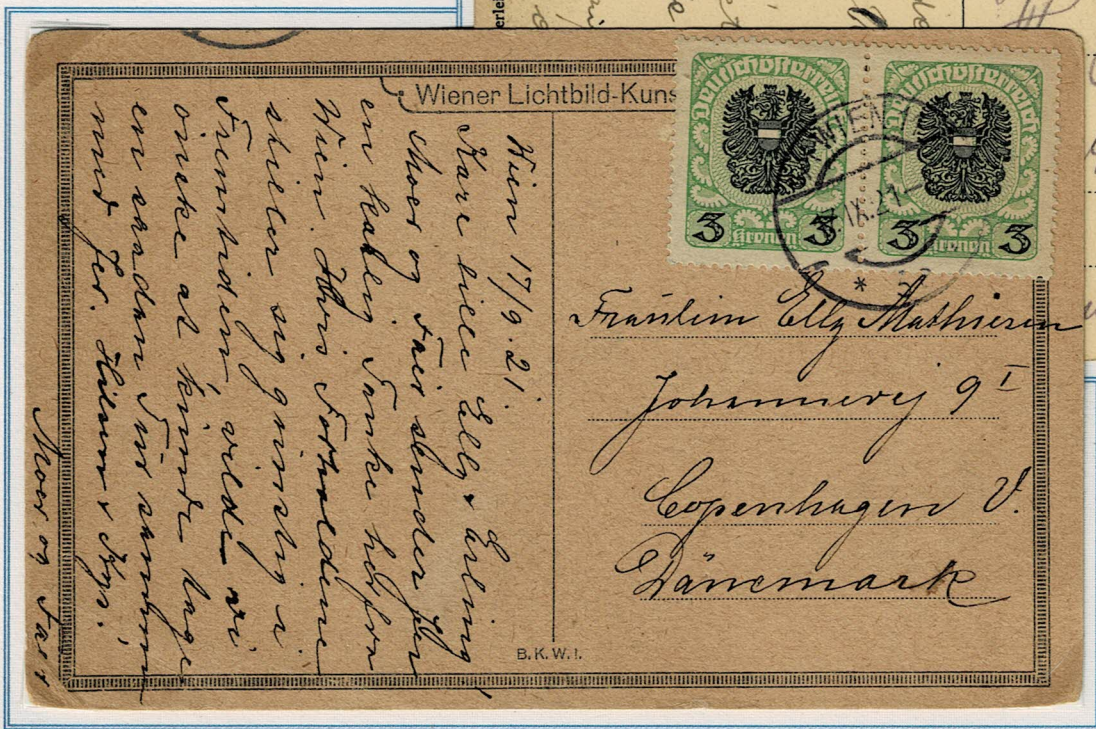 Wiener Lichtbild-Kuns
Deutschösterreich
3 Kronen 3
Deutschösterreich
3 Kronen 3
WIEN
IX.21
*
Wien 17/9.21.
Kære lille Elly & Erling!
Moer og Faer sender Jer
en kærlig Tanke herfra
Wien. Hvis Forholdene
stiller sig gunstig i
Fremtiden, vilde vi
ønske at kunde tage
en saadan Tur sammen
med Jer. Hilsen & Kys!
Moer og Faer
Fräulein Elly Mathiesen
Johannevej 9 I
Copenhagen V.
Dänemark
B.K.W.I.